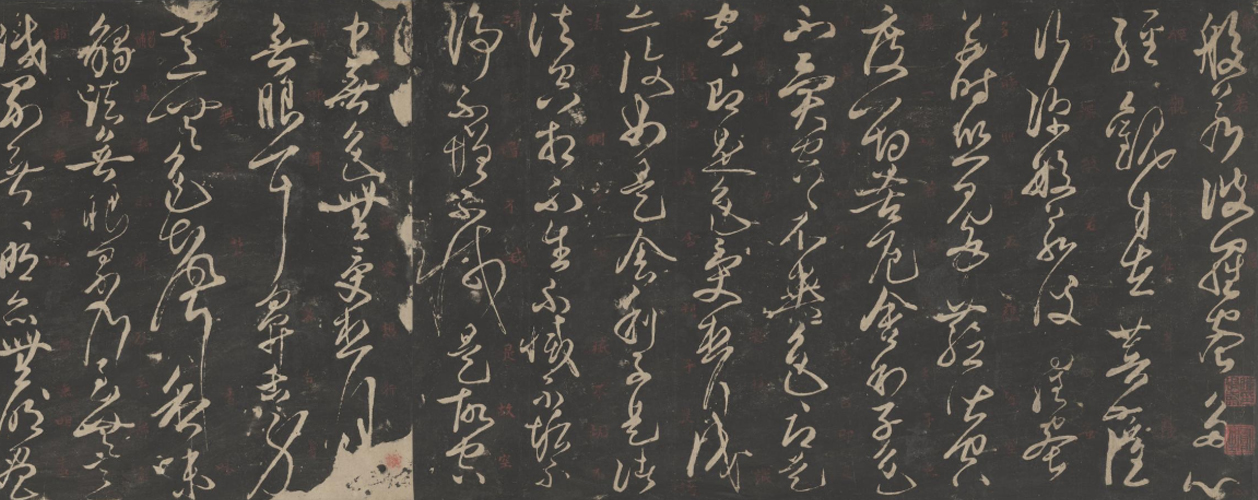 般若波羅蜜多心
經觀自在菩薩
行深般若波羅蜜
多時照見五蘊皆空
度一切苦厄舍利子色
不異空空不異色色即是
空空即是色受想行識
亦復如是舍利子是諸
法空相不生不滅不垢不
淨不增不減是故空
中無色無受想行
無眼耳鼻舌身
意無色聲香味
觸法無眼界乃至無意
識界無無明亦無無明盡